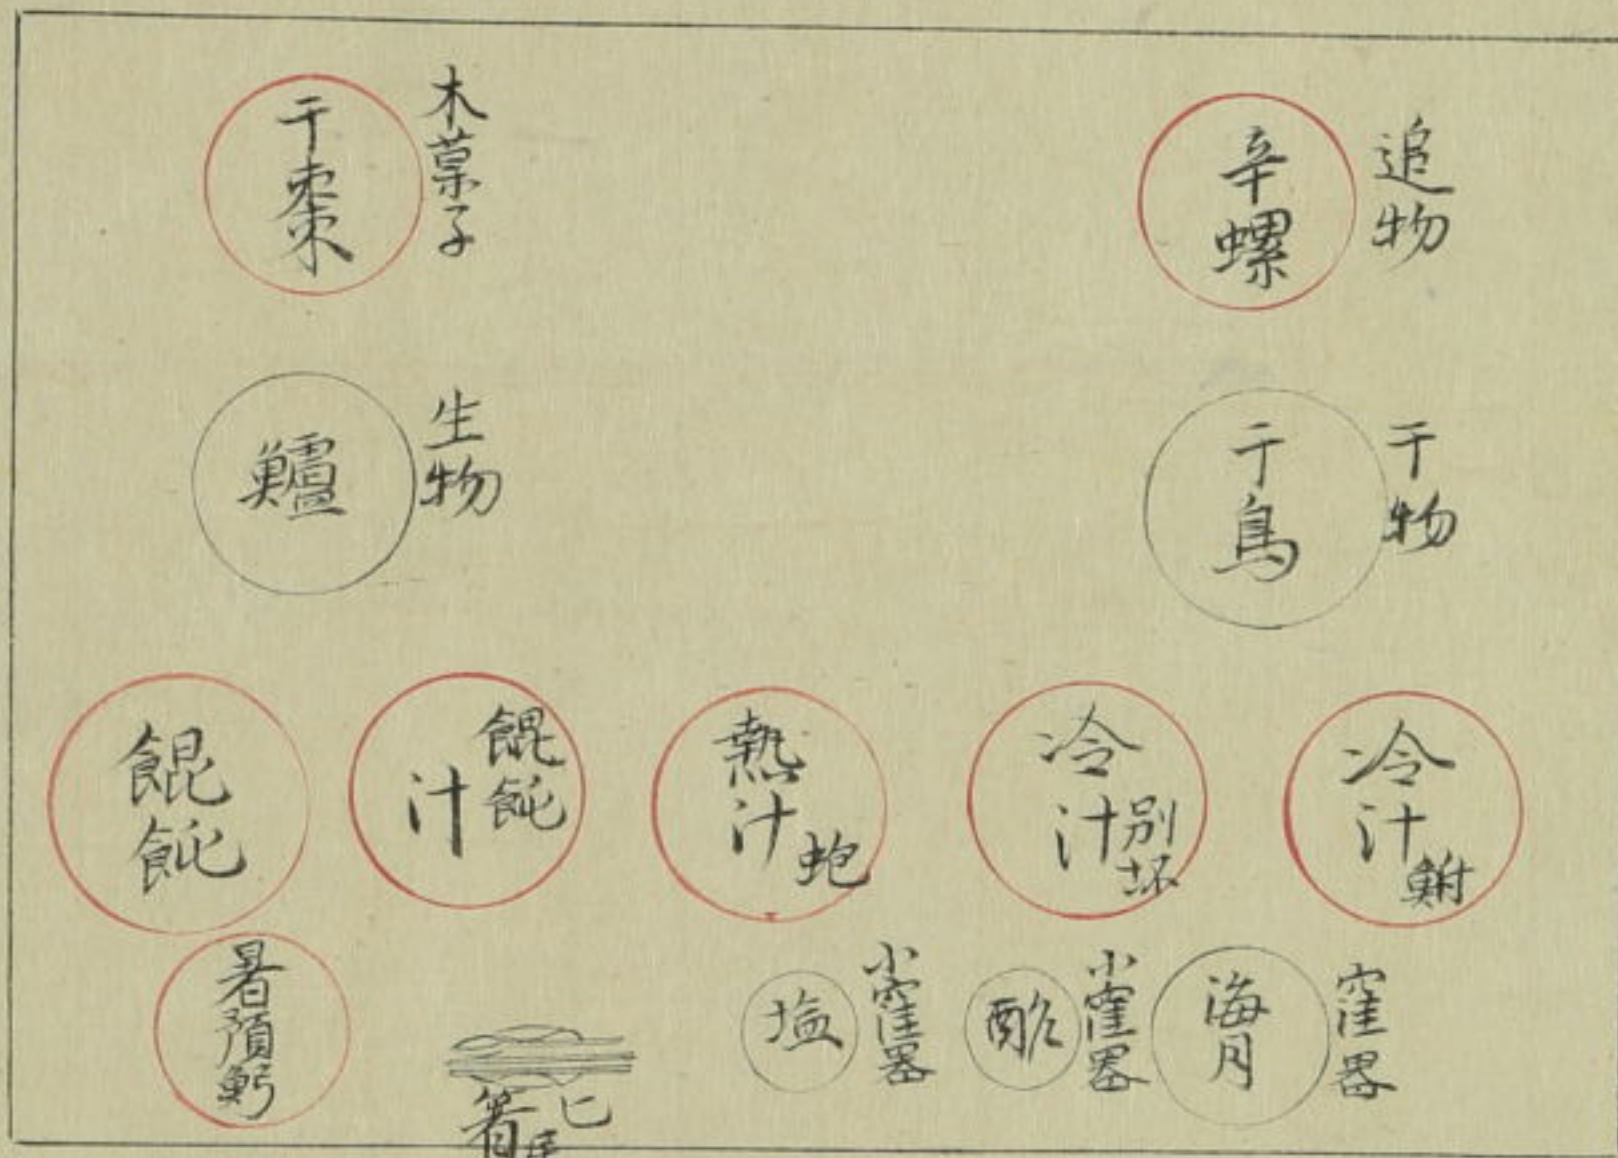 追物
辛螺
木菓子
干棗
干物
干鳥
生物
鱸
冷汁
鮒
冷汁
別坏
熱汁
蚫
餛飩
汁
餛飩
窪器
海月
小窪器
酢
小窪器
塩
匕
箸
暑預